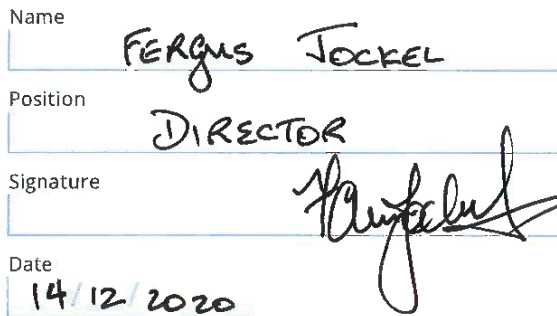 Name
FERGUS JOCKEL
Position
DIRECTOR
Signature
Date
14/12/2020